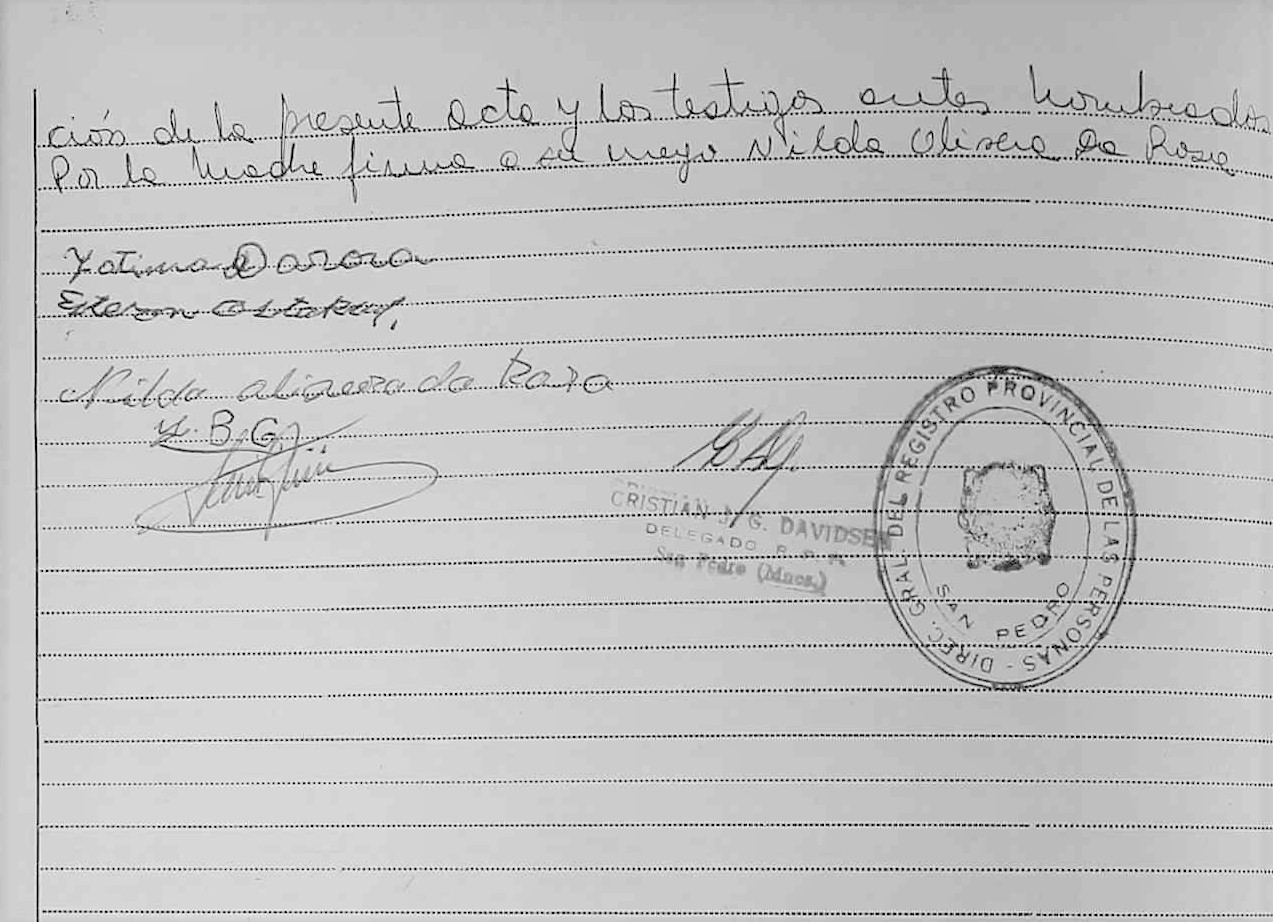 ción de la presente acta y los testigos antes nombrados
Por la madre firma a su ruego Nilda Olivera Da Rosa
Fatima Darosa
Nilda olivera da Roza
Y. B. G.
CRISTIAN J. G. DAVIDSEN
DELEGADO R. P. P.
San Pedro (Mnes.)
DIREC. GRAL. DEL REGISTRO PROVINCIAL DE LAS PERSONAS -
SAN PEDRO